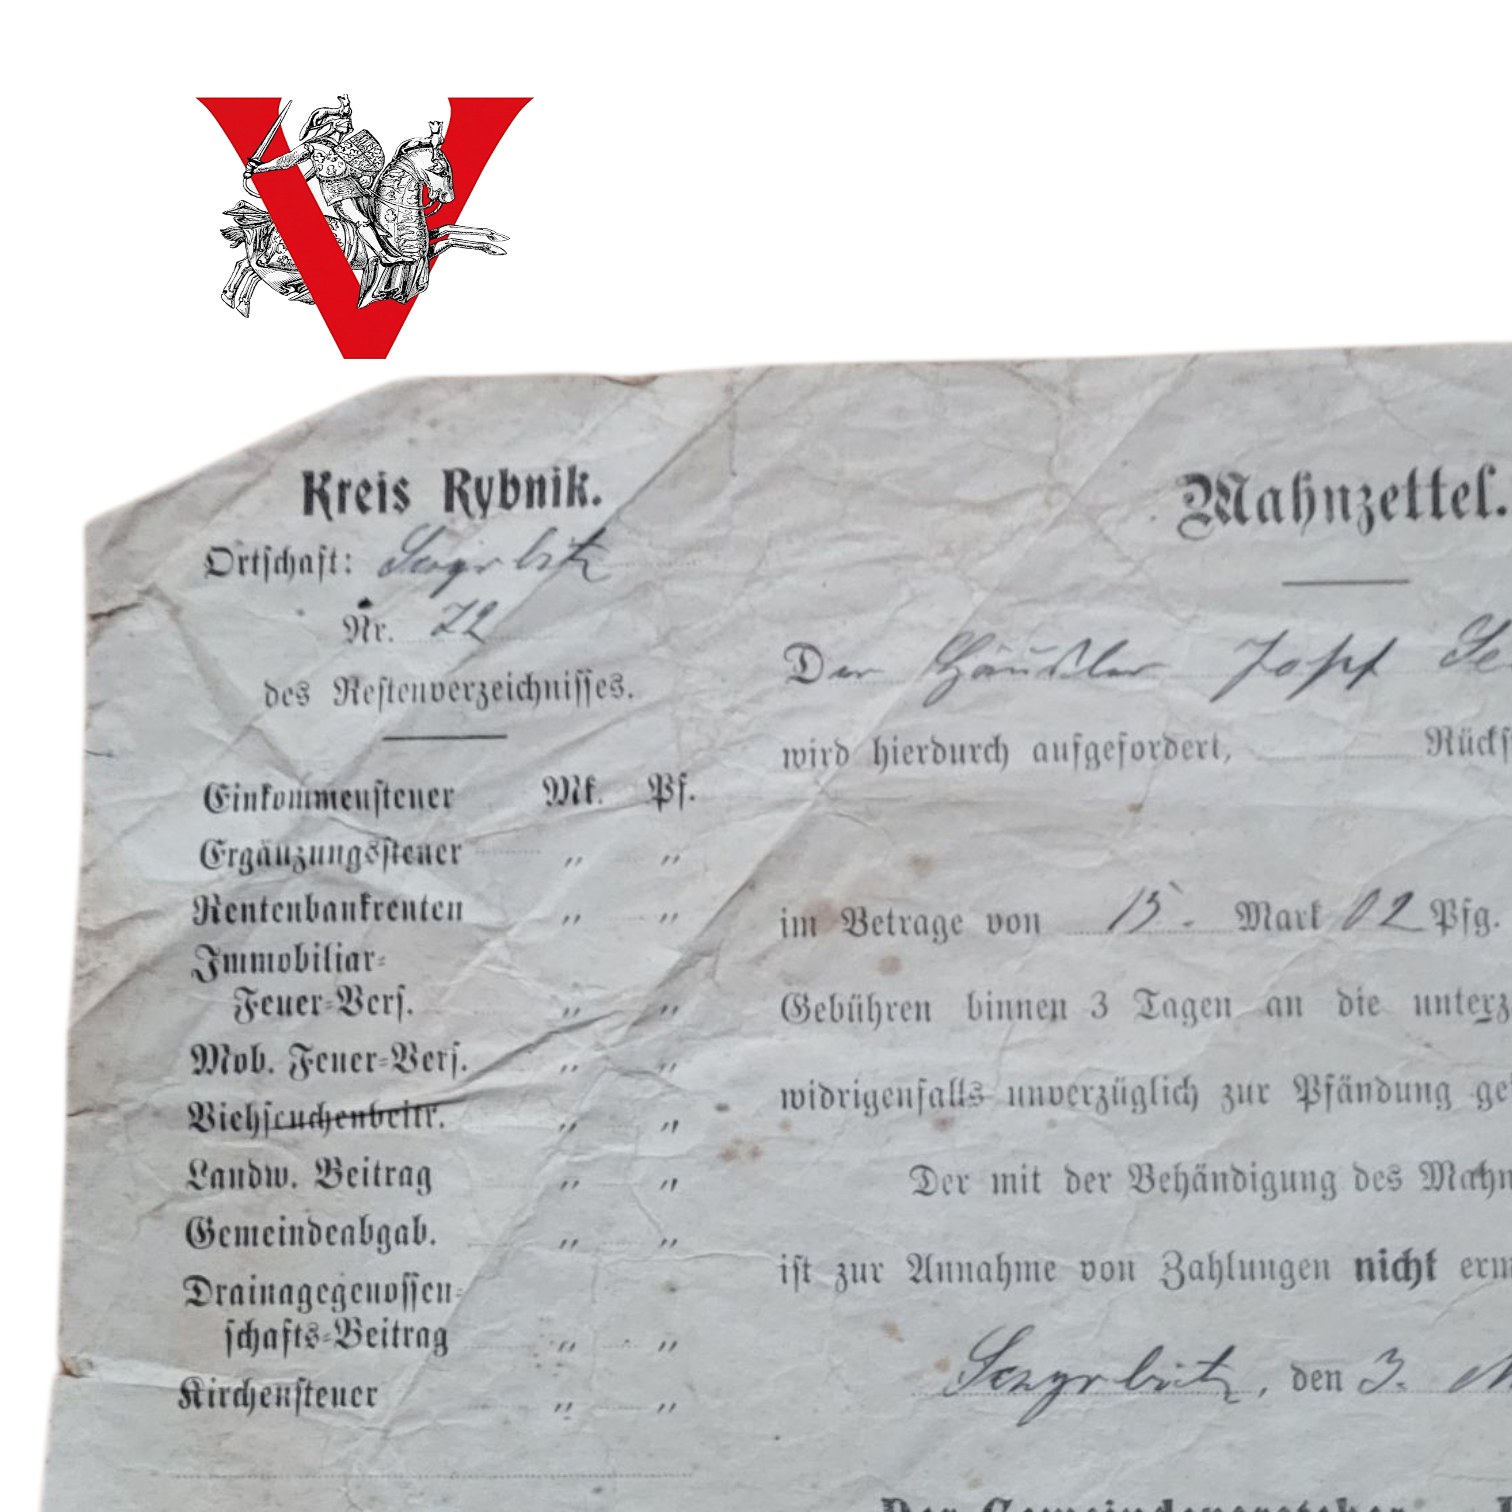 Kreis Rybnik.
Ortschaft:
Nr. 72
des Restenverzeichnisses.
Einkommensteuer Mk. Pf.
Ergänzungssteuer " "
Rentenbankrenten " "
Immobiliar-
Feuer-Vers. " "
Mob. Feuer-Vers. " "
Viehseuchenbeitr. " "
Landw. Beitrag " "
Gemeindeabgab. " "
Drainagegenossen-
schafts-Beitrag " "
Kirchensteuer " "
Mahnzettel.
Der Häusler Josef
wird hierdurch aufgefordert, Rücks
im Betrage von 15. Mark 02 Pfg.
Gebühren binnen 3 Tagen an die unterz
widrigenfalls unverzüglich zur Pfändung ge
Der mit der Behändigung des Mahn
ist zur Annahme von Zahlungen nicht erm
den 3.
Der Gemeindevorsteher